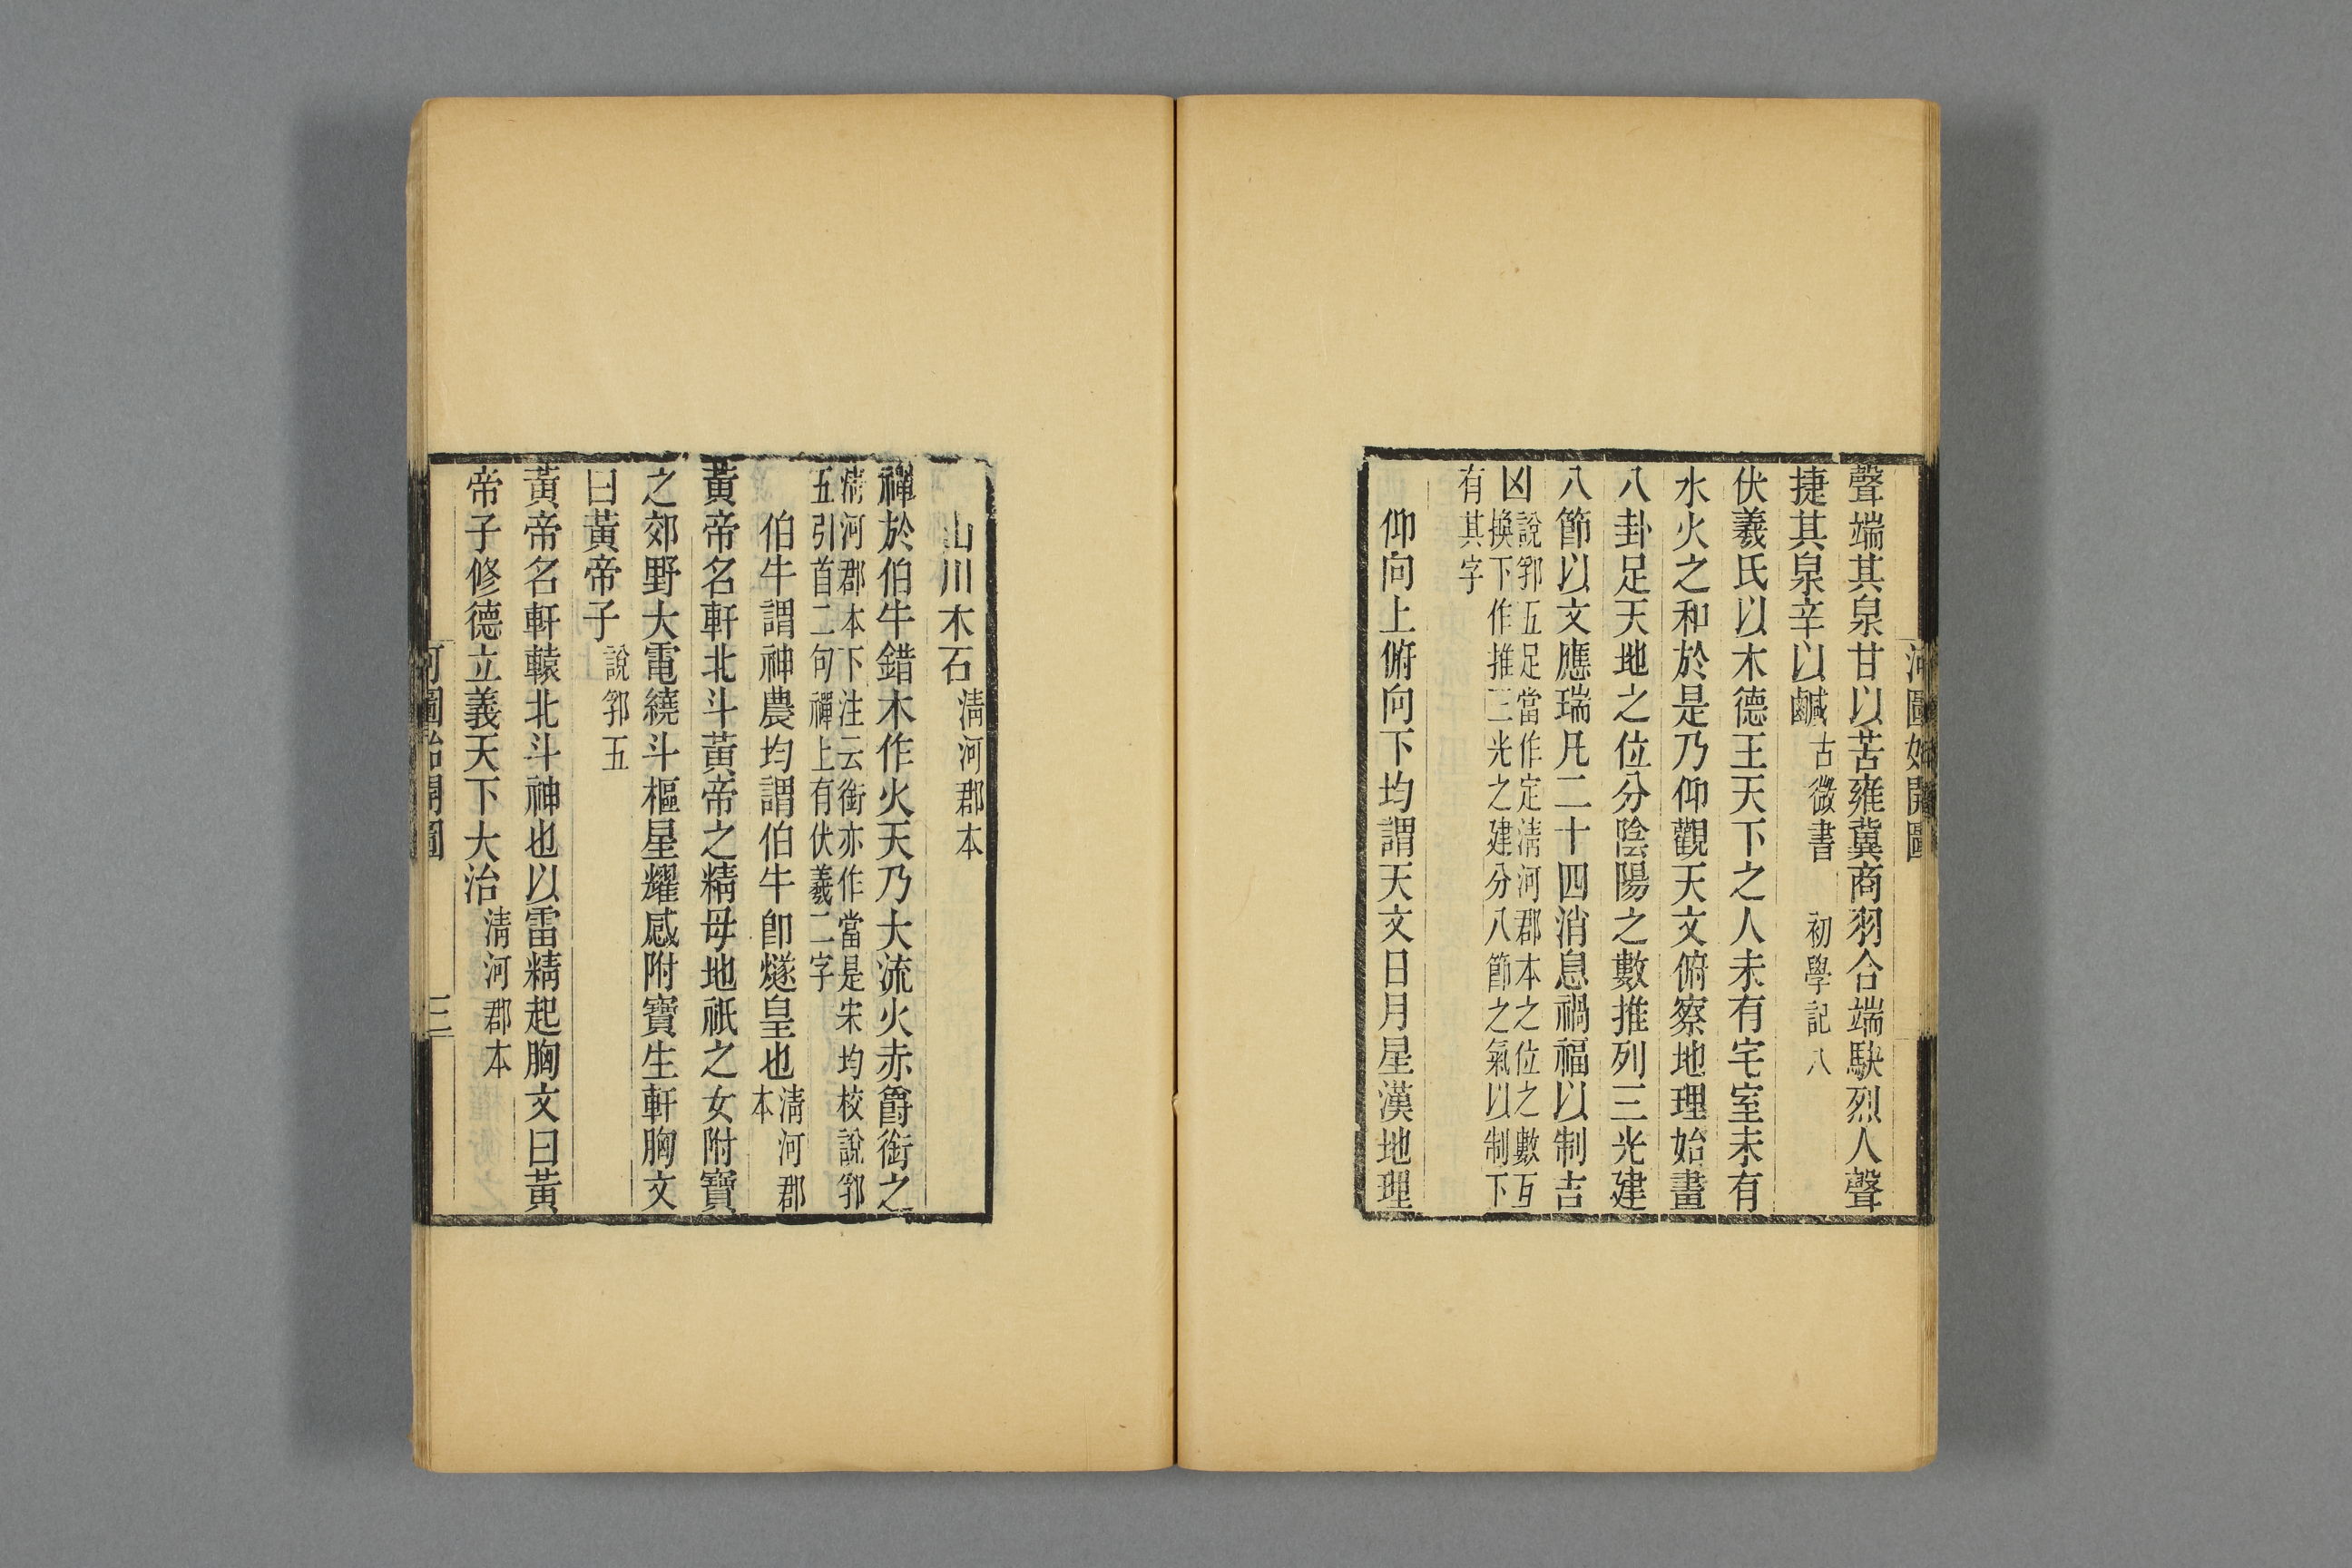 河圖始開圖
聲端其泉甘以苦雍冀商羽合端駃烈人聲
捷其泉辛以鹹古微書 初學記八
伏羲氏以木德王天下之人未有宅室未有
水火之和於是乃仰觀天文俯察地理始畫
八卦足天地之位分陰陽之數推列三光建
八節以文應瑞凡二十四消息禍福以制吉
凶說郛五足當作定淸河郡本之位之數互
換下作推三光之建分八節之氣以制下
有其字
仰向上俯向下均謂天文日月星漢地理
山川木石淸河郡本
禪於伯牛錯木作火天乃大流火赤爵銜之
淸河郡本下注云銜亦作當是宋均校說郛
五引首二句禪上有伏羲二字
伯牛謂神農均謂伯牛卽燧皇也淸河郡
本
黃帝名軒北斗黃帝之精母地祇之女附寶
之郊野大電繞斗樞星耀感附寶生軒胸文
曰黃帝子說郛五
黃帝名軒轅北斗神也以雷精起胸文曰黃
帝子修德立義天下大治淸河郡本
河圖始開圖
三